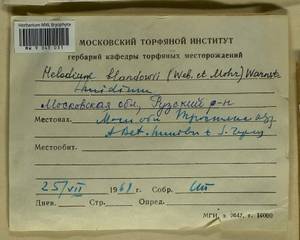 Herbarium MW, Bryophyta
MW 9 045 031
МОСКОВСКИЙ ТОРФЯНОЙ ИНСТИТУТ
гербарий кафедры торфяных месторождений
Helodium blandowii (Web. et Mohr) Warnst.
Московская обл., Рузский р-н
Местонах.
Местообит.
25/VII 1961 г. Собр.
Днев. Стр. Опред.
МГИ, з. 2642, т. 10000